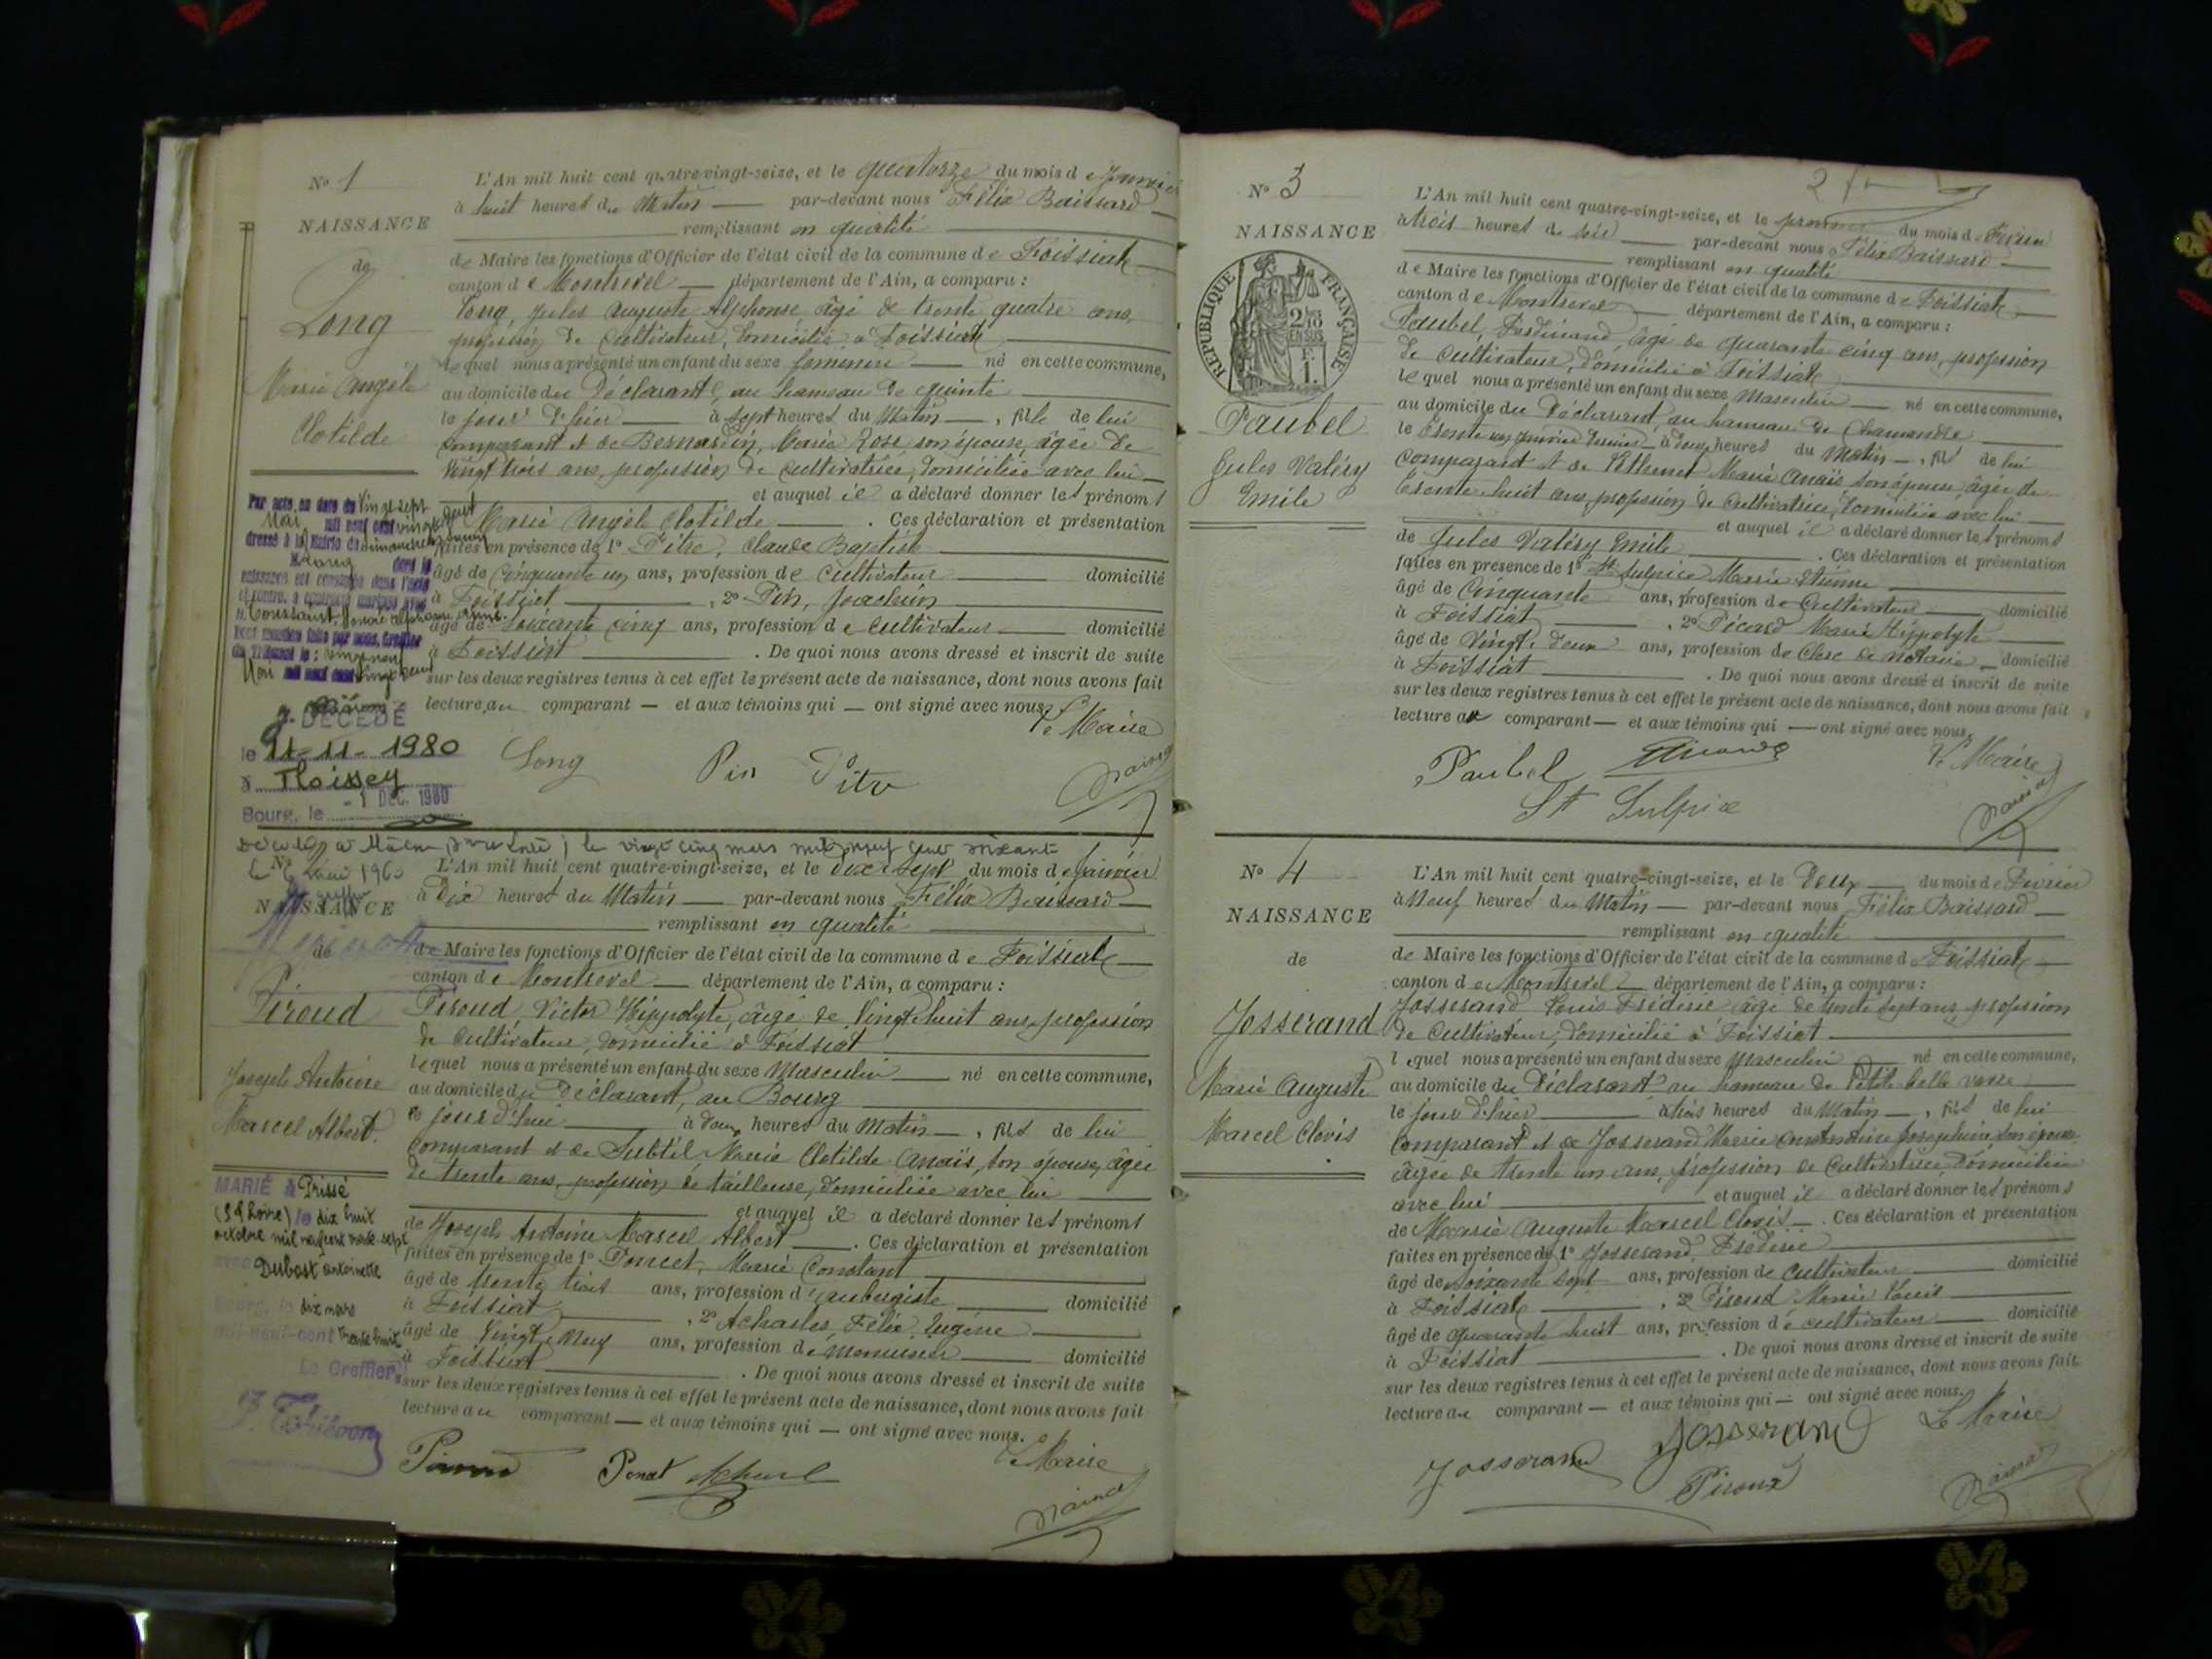 No 1
NAISSANCE
de
Long
Marie Angèle
Clotilde
L'An mil huit cent quatre-vingt-seize, et le quatorze du mois de Janvier
à huit heures du Matin — par-devant nous Félix Baissard
remplissant en qualité
de Maire les fonctions d'Officier de l'état civil de la commune de Foissiat
canton de Montrevel — département de l'Ain, a comparu :
Long, Jules Auguste Alphonse, âgé de trente quatre ans,
profession de Cultivateur, domicilié à Foissiat
lequel nous a présenté un enfant du sexe féminin — né en cette commune,
au domicile du Déclarant, au hameau de quinte
le jour d'hier — à sept heures du Matin —, fille de lui
comparant et de Bernardin, Marie Rose, son épouse, âgée de
vingt trois ans, profession de cultivatrice, domiciliée avec lui —
et auquel il a déclaré donner les prénoms
Marie Angèle Clotilde — . Ces déclaration et présentation
faites en présence de 1° Pitre, Claude Baptiste
âgé de Cinquante un ans, profession de Cultivateur — domicilié
à Foissiat — , 2° Pin, Joachim
âgé de soixante cinq ans, profession de Cultivateur — domicilié
à Foissiat — . De quoi nous avons dressé et inscrit de suite
sur les deux registres tenus à cet effet le présent acte de naissance, dont nous avons fait
lecture au comparant — et aux témoins qui — ont signé avec nous.
Le Maire
Long Pin Pitre
Par acte en date du vingt sept
Mai mil neuf cent vingt deux
dressé à la Mairie de
DÉCÉDÉ
le 11-11-1980
à Thoissey
Bourg, le - 1 DEC. 1980
Décédé à Mâcon le vingt cinq mars mil neuf cent soixante
NAISSANCE
de
Piroud
Joseph Antoine
Marcel Albert
L'An mil huit cent quatre-vingt-seize, et le dix sept du mois de Janvier
à Dix heures du Matin — par-devant nous Félix Baissard —
remplissant en qualité
de Maire les fonctions d'Officier de l'état civil de la commune de Foissiat —
canton de Montrevel — département de l'Ain, a comparu :
Piroud, Victor Hippolyte, âgé de Vingt huit ans, profession
de Cultivateur, domicilié à Foissiat
lequel nous a présenté un enfant du sexe Masculin — né en cette commune,
au domicile du Déclarant, au Bourg
le jour d'hui — à deux heures du Matin —, fils de lui
Comparant et de Subtil Marie Clotilde Anaïs, son épouse, âgée
de trente ans, profession de tailleuse, domiciliée avec lui
et auquel il a déclaré donner les prénoms
de Joseph Antoine Marcel Albert — . Ces déclaration et présentation
faites en présence de 1° Poncet, Marie Constant
âgé de trente trois ans, profession d'aubergiste — domicilié
à Foissiat — , 2° Acharles, Félix Eugène
âgé de Vingt Neuf ans, profession de menuisier — domicilié
à Foissiat — . De quoi nous avons dressé et inscrit de suite
sur les deux registres tenus à cet effet le présent acte de naissance, dont nous avons fait
lecture au comparant — et aux témoins qui — ont signé avec nous.
Le Maire
MARIÉ à Prissé
(S & Loire) le dix huit
octobre mil neuf cent trente sept
avec Dubost Antoinette
Bourg, le dix mars
mil-neuf-cent trente huit
Le Greffier
No 3
NAISSANCE
RÉPUBLIQUE FRANÇAISE
2/10 EN SUS
Paubel
Jules Valéry
Emile
L'An mil huit cent quatre-vingt-seize, et le premier du mois de Février
à trois heures du soir — par-devant nous Félix Baissard —
remplissant en qualité
de Maire les fonctions d'Officier de l'état civil de la commune de Foissiat
canton de Montrevel — département de l'Ain, a comparu :
Paubel, Ferdinand, âgé de quarante cinq ans, profession
de Cultivateur, domicilié à Foissiat
lequel nous a présenté un enfant du sexe Masculin — né en cette commune,
au domicile du Déclarant, au hameau de Chamandre
le trente un janvier dernier à deux heures du Matin —, fils de lui
comparant et de Marie Anaïs son épouse, âgée de
trente huit ans, profession de Cultivatrice, domiciliée avec lui —
et auquel il a déclaré donner les prénoms
de Jules Valéry Emile — . Ces déclaration et présentation
faites en présence de 1° St Sulpice Marie Etienne
âgé de Cinquante ans, profession de Cultivateur — domicilié
à Foissiat — , 2° Picard Marie Hippolyte
âgé de Vingt deux ans, profession de Clerc de notaire — domicilié
à Foissiat — . De quoi nous avons dressé et inscrit de suite
sur les deux registres tenus à cet effet le présent acte de naissance, dont nous avons fait
lecture au comparant — et aux témoins qui — ont signé avec nous.
Le Maire
Paubel
St Sulpice
No 4
NAISSANCE
de
Josserand
Marie Auguste
Marcel Clovis
L'An mil huit cent quatre-vingt-seize, et le Deux — du mois de Février
à Neuf heures du Matin — par-devant nous Félix Baissard —
remplissant en qualité
de Maire les fonctions d'Officier de l'état civil de la commune de Foissiat —
canton de Montrevel — département de l'Ain, a comparu :
Josserand Louis Frédéric âgé de trente sept ans, profession
de Cultivateur, domicilié à Foissiat
lequel nous a présenté un enfant du sexe Masculin — né en cette commune,
au domicile du Déclarant au hameau de Petite belle vavre
le jour d'hier — à trois heures du Matin —, fils de lui
Comparant et de Josserand Marie Joséphine son épouse,
âgée de trente un ans, profession de Cultivatrice, domiciliée
avec lui — et auquel il a déclaré donner les prénoms
de Marie Auguste Marcel Clovis — . Ces déclaration et présentation
faites en présence de 1° Josserand, Frédéric
âgé de soixante sept ans, profession de Cultivateur — domicilié
à Foissiat — , 2° Piroud Marie Louis
âgé de quarante huit ans, profession de cultivateur — domicilié
à Foissiat — . De quoi nous avons dressé et inscrit de suite
sur les deux registres tenus à cet effet le présent acte de naissance, dont nous avons fait
lecture au comparant — et aux témoins qui — ont signé avec nous.
Josserand Josserand Le Maire
Piroud